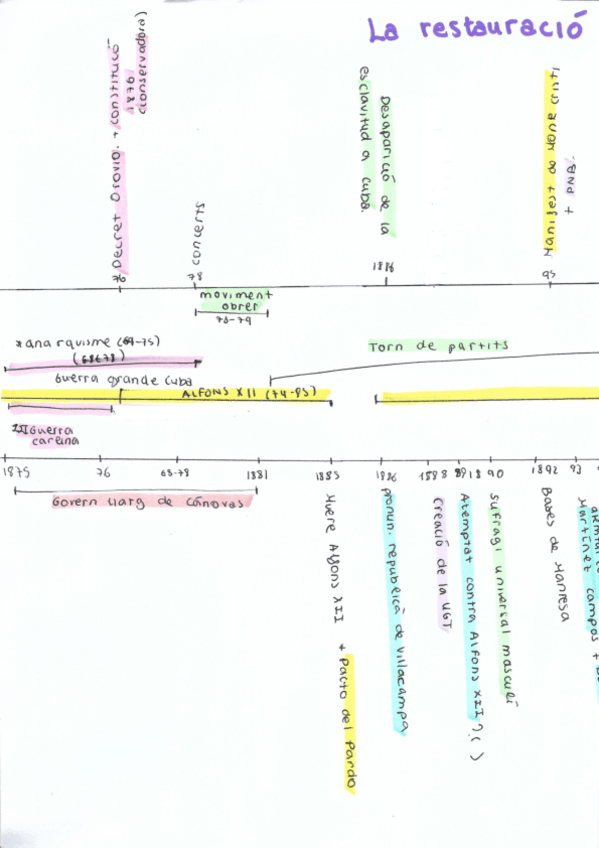 La restauració
Decret Orovio. + constitució
1876
(conservadora)
concerts
Desaparició de la
esclavitud a Cuba.
+ PNB.
76
78
1886
95
moviment
obrer
73-79
(68-78)
Torn de partits
Guerra grande Cuba
ALFONS XII (74-85)
Guerra
carlina
1875
76
68-78
1881
1885
1886
90
1892
93
Govern llarg de Cánovas
Muere Alfons XII + Pacto del Pardo
pronun. republicà de Villacampa
creació de la UGT
Atemptat contra Alfons XII?( )
sufragi universal masculí
Bases de Manresa
Martínez campos +